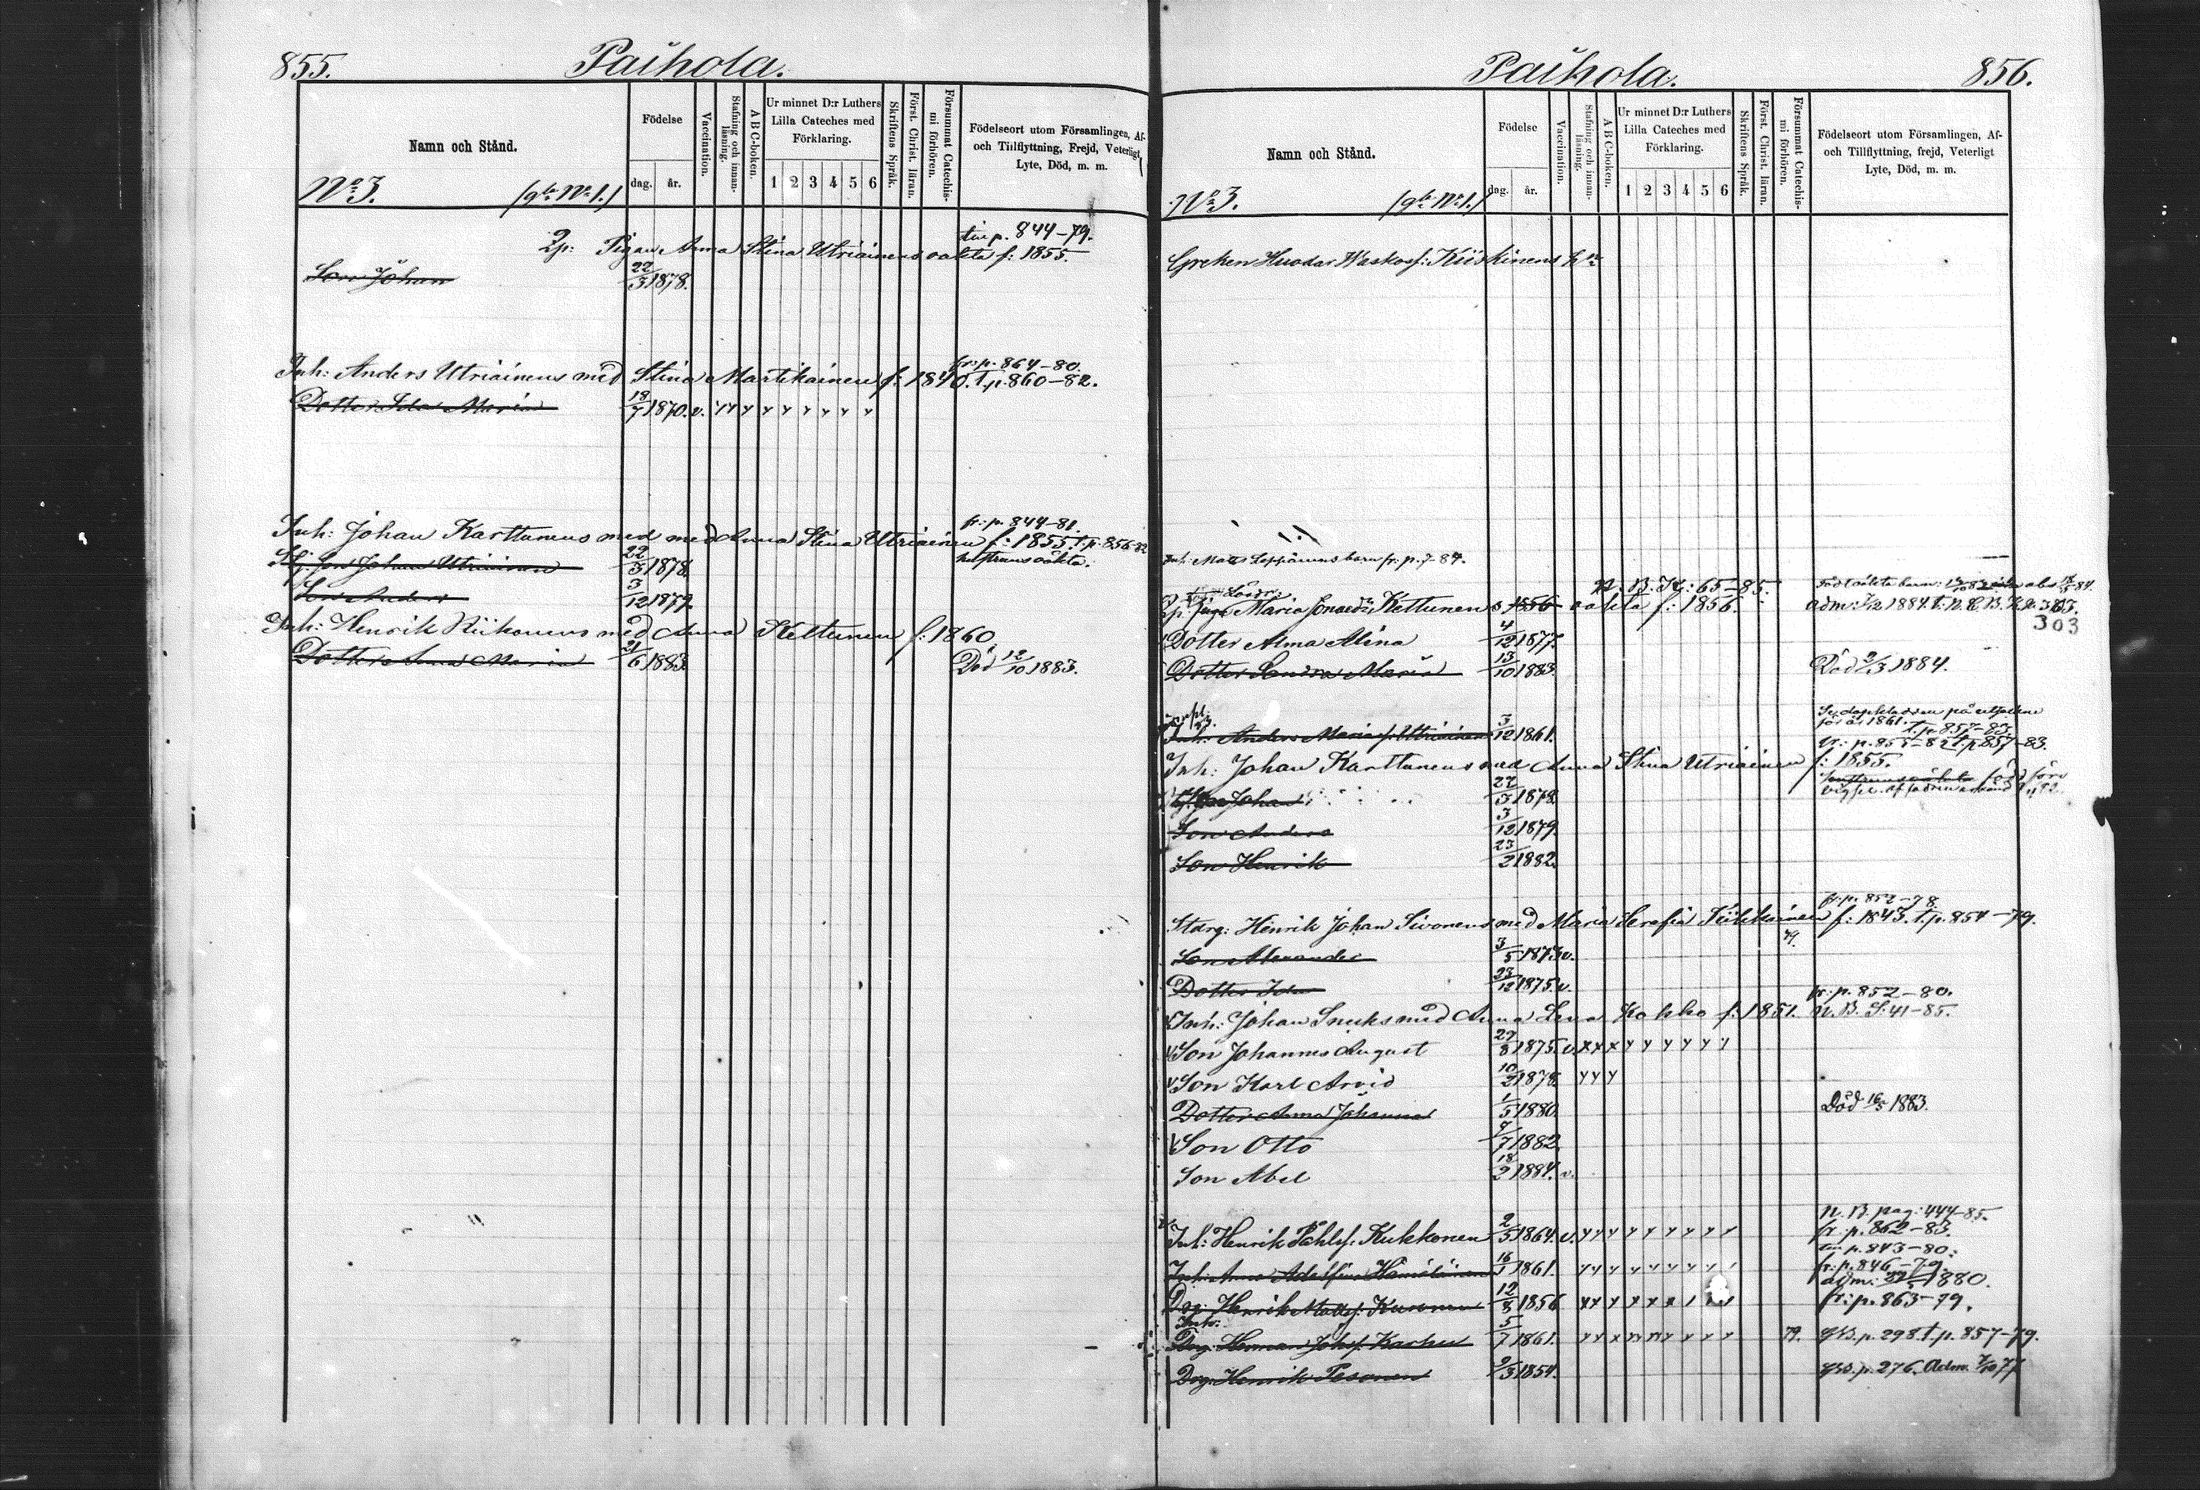 855.
Paihola.
Namn och Stånd.
Födelse
dag.
år.
Vaccination.
Stafning och innan-
läsning.
A B C-boken.
Ur minnet D:r Luthers
Lilla Cateches med
Förklaring.
1 2 3 4 5 6
Skriftens Språk.
Först. Christ. läran.
Försummat Catechis-
mi förhören.
Födelseort utom Församlingen, Af-
och Tillflyttning, Frejd, Veterligt
Lyte, Död, m. m.
No 3. (gla No 1.)
p. 844-79.
Pigan Anna Stina Utriainens oäkta f: 1855.
Son Johan 22/3 1878.
fr: p. 864-80.
Inh: Anders Utriainens med Stina Martikainen f: 1840. t.p. 860-82.
Dotter Ida Maria 18/7 1870. v.
fr: p. 844-81.
Inh: Johan Karttunens med med Anna Stina Utriainen f: 1855. t.p. 856-82
Son Johan Utriainen 22/3 1878. hustruns oäkta.
Son Anders 3/12 1879.
Inh: Henrik Riikonens med Anna Kettunen f: 1860
Dotter Anna Maria 21/6 1883. Död 12/10 1883.
Paihola.
856.
Namn och Stånd.
Födelse
dag.
år.
Vaccination.
Stafning och innan-
läsning.
A B C-boken.
Ur minnet D:r Luthers
Lilla Cateches med
Förklaring.
1 2 3 4 5 6
Skriftens Språk.
Först. Christ. läran.
Försummat Catechis-
mi förhören.
Födelseort utom Församlingen, Af-
och Tillflyttning, frejd, Veterligt
Lyte, Död, m. m.
No 3. (gla No 1.)
Greken Huodar Waskosf: Kiiskinens
Inh: Matts barn fr. p. 7-84.
N. B. 65-85.
Maria Kettunen oäkta f: 1856.
303
Dotter Alma Alina 4/12 1877.
Dotter Sandra Maria 13/10 1883. Död 2/3 1884.
för år 1861. t.p. 857-83.
Inh: Anders Utriainen 3/12 1861.
fr: p. 855-82 t.p. 857-83.
Inh: Johan Karttunens med Anna Stina Utriainen f: 1855.
Son Johan 22/3 1878.
Son Anders 3/12 1879.
Son Henrik 23/2 1882.
fr: p. 852-78.
Henrik Johan Sivonens med Maria Serafia f: 1843. t.p. 854-79.
79.
Son Alexander 3/5 1873. v.
Dotter Ida 23/12 1875. v.
fr: p. 852-80.
Inh: Johan Snicks med Anna Lena Kokko f: 1851. N. B. S: 41-85.
Son Johannes August 29/8 1875. v.
Son Karl Arvid 10/2 1878.
Dotter Anna Johanna 1/5 1880. Död 16/5 1883.
Son Otto 9/7 1882.
Son Abel 18/2 1884. v.
N. B. pag: 444-85.
fr: p. 862-83.
Inh: Henrik Påhlsf: Kukkonen 2/3 1864. v.
p. 843-80.
fr: p. 846-79.
Inh: Anna Adolfina Hämäläinen 16/1 1861.
1880.
Drg: Henrik Mattsf: Kuronen 12/8 1856 fr: p. 863-79.
Drg: Herman Johsf: Karhu 5/7 1861. 79. p. 298. t.p. 857-79.
Drg: Henrik Pesonen 2/3 1854. p. 276. Adm. 77